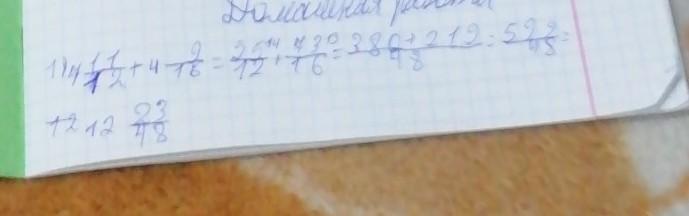 Домашняя работа
1) 4 11/12 + 4 9/16 = /12 + 73/16 = 380 + 219/48 = 599/48 =
12 23/48